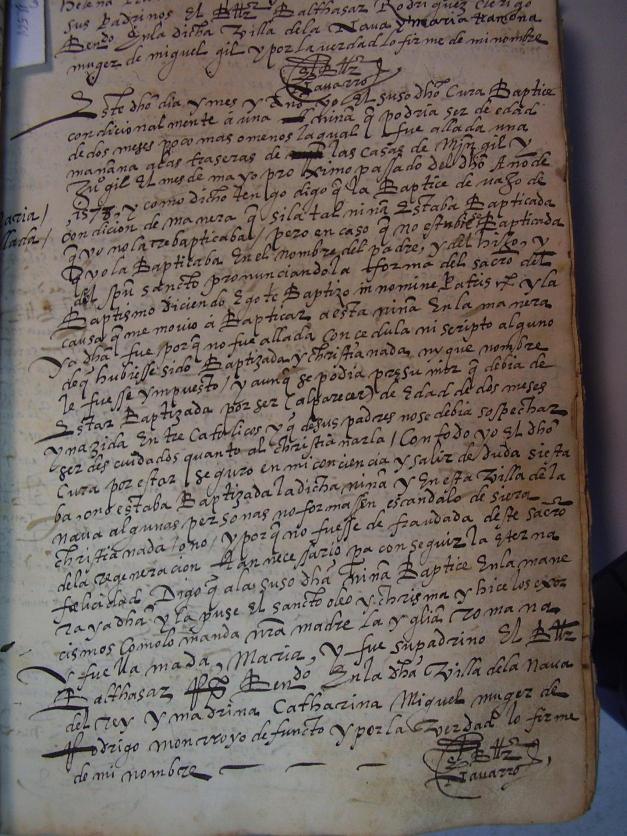 sus Padrinos El Bllr Balthasar Rodriguez Clerigo
Bendo En la dicha Villa dela Nava y maria Ramona
muger de miguel gil y por la verdad lo firme de mi nombre
El Bllr
Navarro
Este dho dia y mes y Año yo El suso dho Cura Baptice
condicionalmente á una niña q podria ser de edad
de dos meses poco mas o menos la qual fue allada una
mañana a las traseras de las casas de Mjn gil y
Ju° gil El mes de mayo proximo passado del dho Año de
1578, y como dicho tengo digo q la Baptice de
condicion de manera q si la tal niña Estaba Baptizada
q yo no la rebapticaba / pero en caso q no estubiese Bapticada
q yo la Bapticaba En el nombre del padre, y del hijo, y
del spu sancto pronunciandola forma del sacro del
Baptismo diciendo Ego te Baptizo in nomine Patris et y la
causa q me movio á Bapticar a esta niña En la manera
ya dha fue porq no fue allada con cedula ni scripto alguno
de q hubiesse sido Baptizada y christianada, ny que nombre
le fuesse ympuesto / y aunq se podia presumir q debia de
Estar Baptizada por ser (al parecer) de Edad de dos meses
y nazida Entre Catolicos y q de sus padres no se debia sospechar
ser descuidados quanto al christianarla / Con todo yo El dho
Cura por estar seguro en mi conciencia y salir de duda si esta
ba, o no estaba Baptizada la dicha niña y En esta Villa dela
nava algunas personas no formassen escandalo de si era
christianada / o no / y porq no fuesse defraudada deste sacro
dela regeneracion tan necessario pa conseguir la Eterna
felicidad Digo q a la suso dha niña Baptice En la mane
ra ya dha y la puse El sancto oleo y chrisma y hice los exor
cismos como lo manda nra madre la yglia romana
y fue llamada, Maria, y fue su padrino El Bllr
Balthasar Rz Bendo En la dha Villa dela Nava
del rey y madrina Catharina Miguel muger de
Rodrigo monrroyo defuncto y por la Verdad lo firme
de mi nombre
El Bllr
Navarro
maria /
allada /